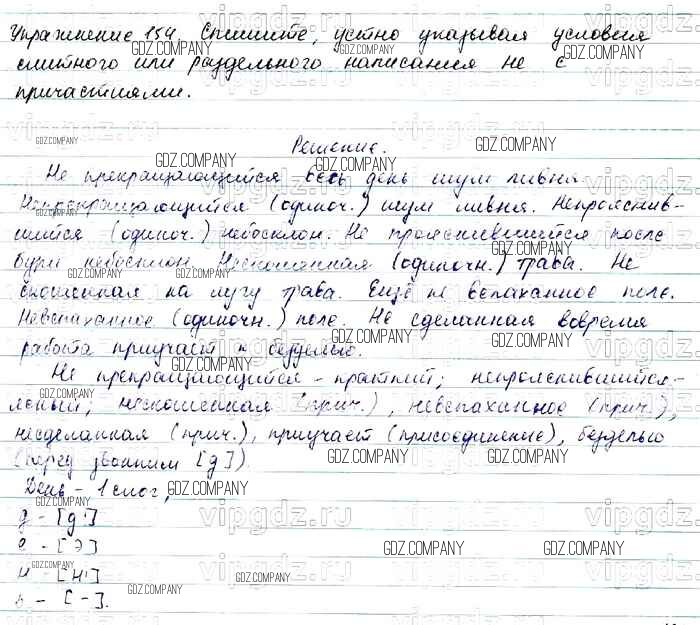 Упражнение 154. Спишите, устно указывая условия
слитного или раздельного написания не с
причастиями.
Решение.
Не прекращающийся весь день шум ливня.
Непрекращающийся (одиноч.) шум ливня. Непрояснив-
шийся (одиноч.) небосклон. Не прояснившийся после
бури небосклон. Нескошенная (одиночн.) трава. Не
скошенная на лугу трава. Ещё не вспаханное поле.
Невспаханное (одиночн.) поле. Не сделанная вовремя
работа приучает к безделью.
Не прекращающийся – краткий; непрояснившийся –
ясный; нескошенная (прич.), невспаханное (прич.),
несделанная (прич.), приучает (присоединение), безделью
(перед звонким [д]).
День – 1 слог;
д – [д']
е – [э]
н – [н']
ь – [-].
GDZ.COMPANY
vipgdz.ru